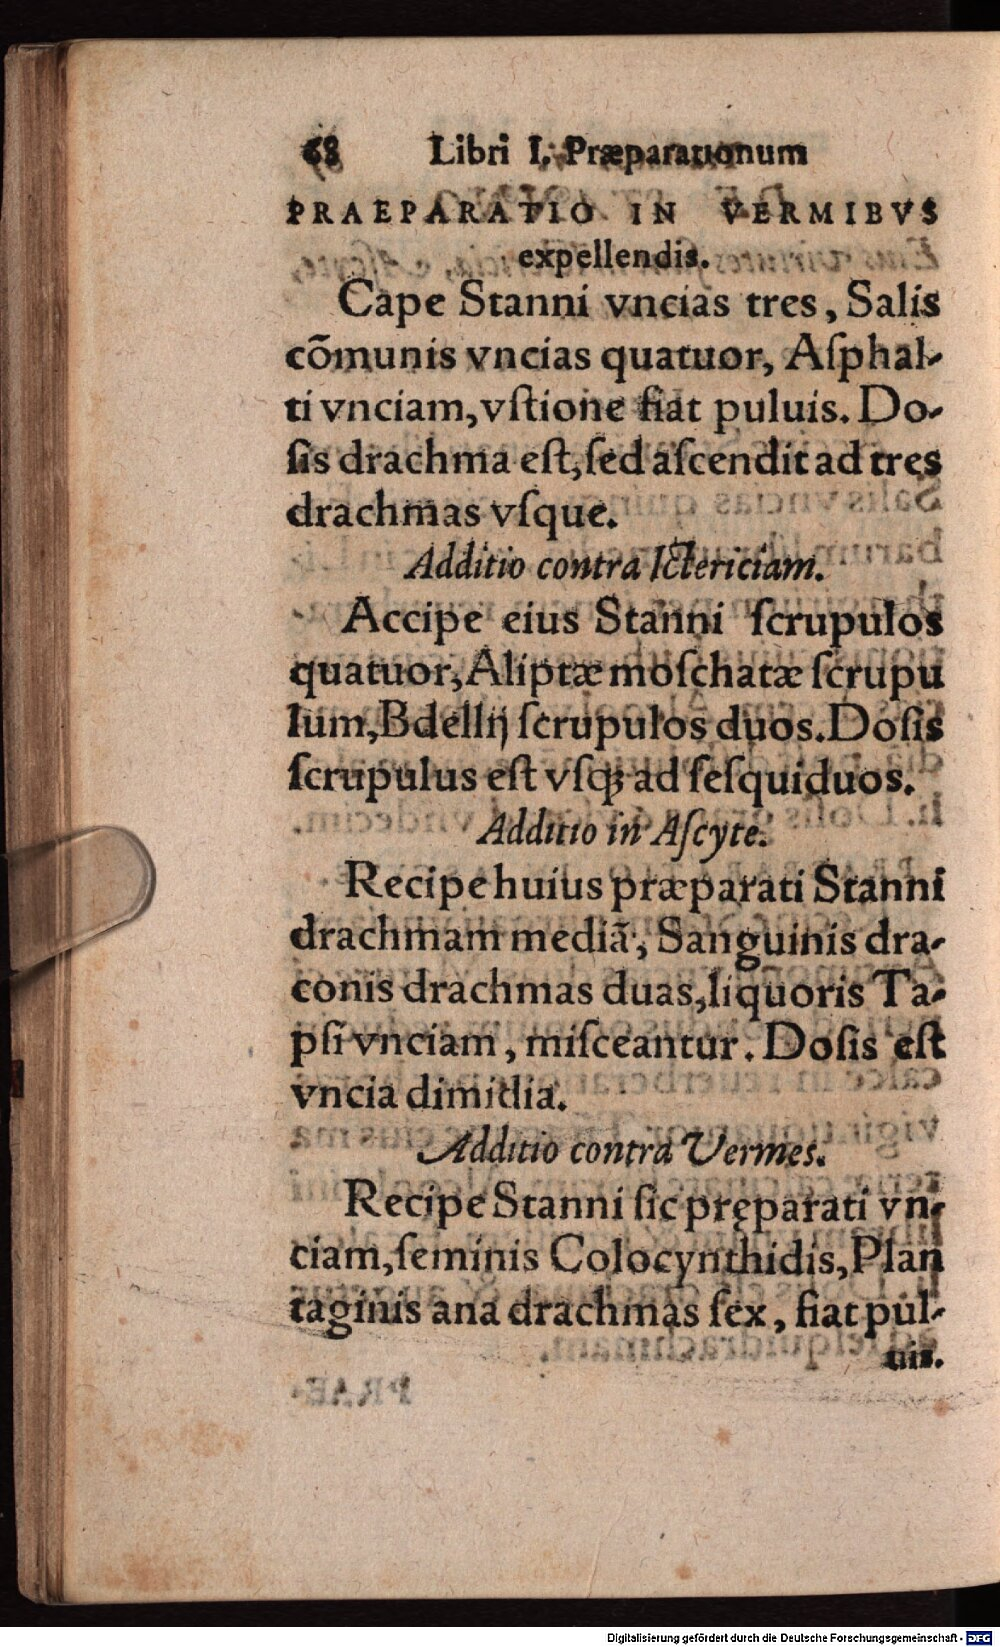 68 Libri I. Præparationum
PRAEPARATIO IN VERMIBVS
expellendis.
Cape Stanni vncias tres, Salis
cõmunis vncias quatuor, Aſphal-
ti vnciam, vſtione fiat puluis. Do-
ſis drachma eſt, ſed aſcendit ad tres
drachmas vſque.
Additio contra Ictericiam.
Accipe eius Stanni ſcrupulos
quatuor, Aliptæ moſchatæ ſcrupu
lum, Bdellij ſcrupulos duos. Doſis
ſcrupulus eſt vſq; ad ſeſquiduos.
Additio in Aſcyte.
Recipe huius præparati Stanni
drachmam mediã, Sanguinis dra-
conis drachmas duas, liquoris Ta-
pſi vnciam, miſceantur. Doſis eſt
vncia dimidia.
Additio contra Vermes.
Recipe Stanni ſic pręparati vn-
ciam, ſeminis Colocynthidis, Plan
taginis ana drachmas ſex, fiat pul-
uis.
Digitalisierung gefördert durch die Deutsche Forschungsgemeinschaft - DFG